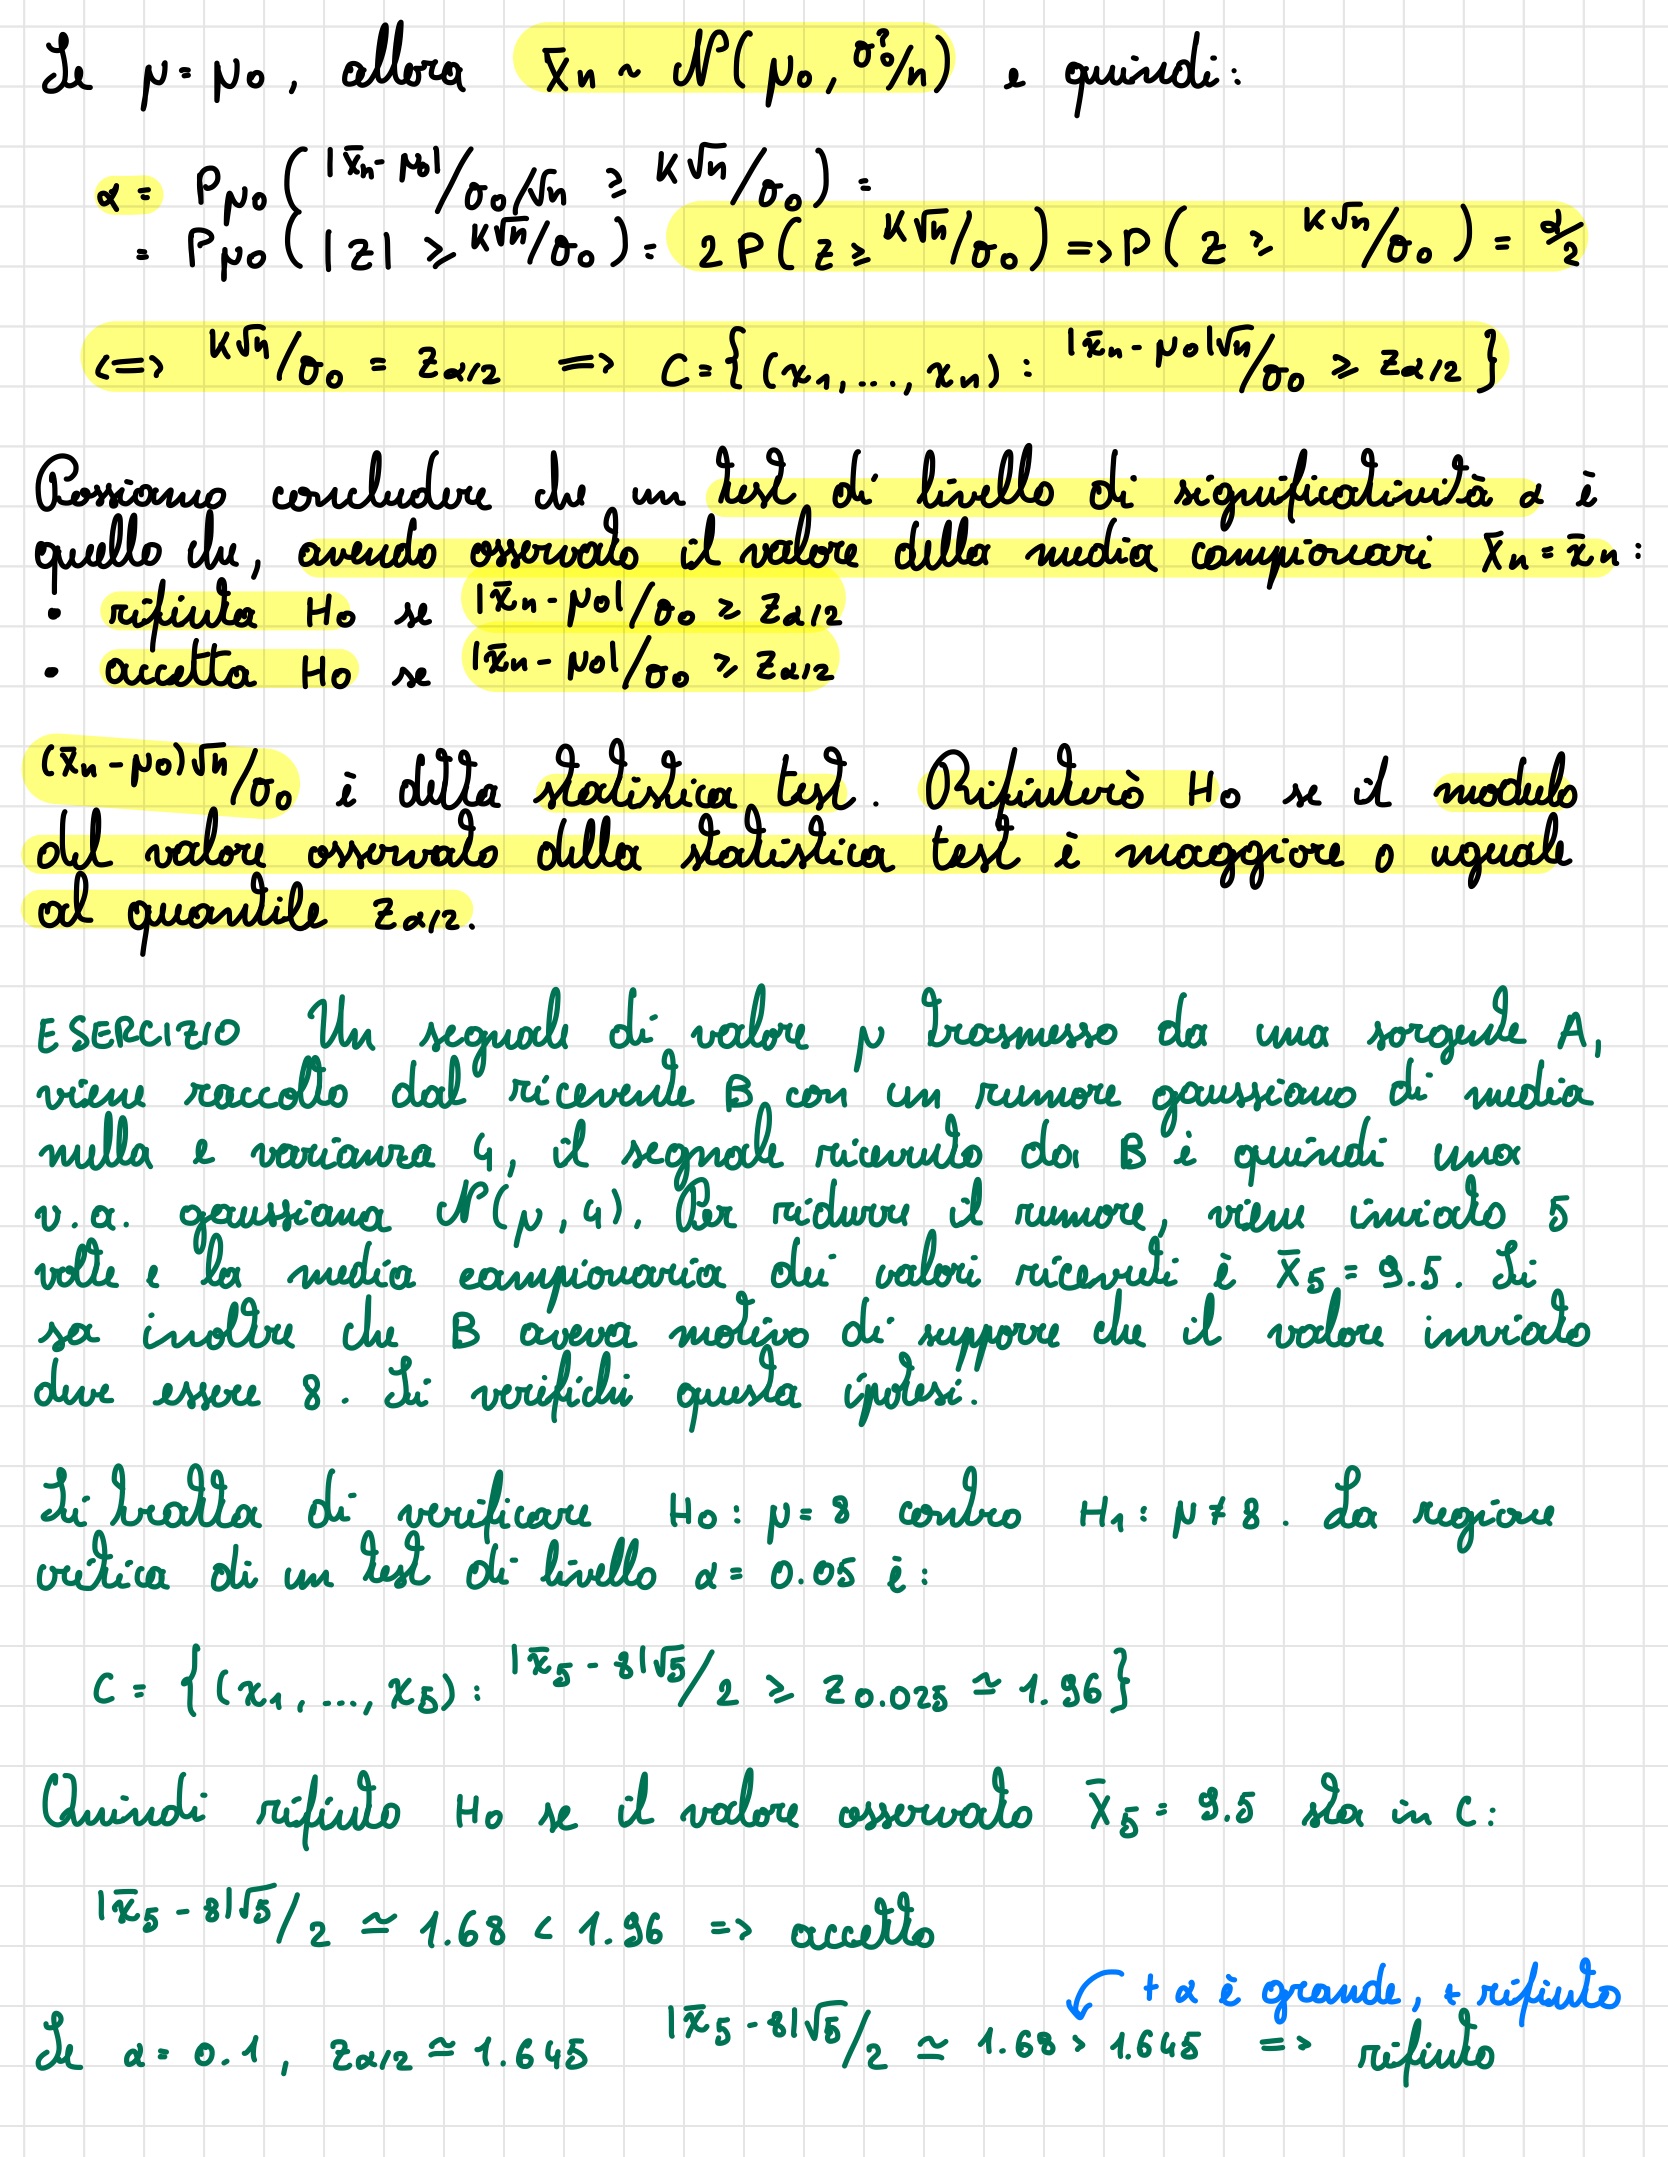 Se μ = μ0, allora X̄n ~ N(μ0, σ0²/n) e quindi:
α = Pμ0( |X̄n - μ0| / σ0/√n ≥ K√n/σ0 ) =
= Pμ0( |Z| ≥ K√n/σ0 ) = 2P( Z ≥ K√n/σ0 ) => P( Z ≥ K√n/σ0 ) = α/2
<=> K√n/σ0 = Zα/2 => C = { (x1, ..., xn) : |x̄n - μ0|√n/σ0 ≥ Zα/2 }
Possiamo concludere che un test di livello di significatività α è
quello che, avendo osservato il valore della media campionari X̄n = x̄n :
• rifiuta H0 se |x̄n - μ0|/σ0 ≥ Zα/2
• accetta H0 se |x̄n - μ0|/σ0 ≥ Zα/2
(x̄n - μ0)√n/σ0 è detta statistica test. Rifiuterò H0 se il modulo
del valore osservato della statistica test è maggiore o uguale
al quantile Zα/2.
ESERCIZIO Un segnale di valore μ trasmesso da una sorgente A,
viene raccolto dal ricevente B con un rumore gaussiano di media
nulla e varianza 4, il segnale ricevuto da B è quindi una
v.a. gaussiana N(μ, 4). Per ridurre il rumore, viene inviato 5
volte e la media campionaria dei valori ricevuti è X̄5 = 9.5. Si
sa inoltre che B aveva motivo di supporre che il valore inviato
deve essere 8. Si verifichi questa ipotesi.
Si tratta di verificare H0 : μ = 8 contro H1 : μ ≠ 8. La regione
critica di un test di livello α = 0.05 è:
C = { (x1, ..., x5) : |x̄5 - 8|√5/2 ≥ Z0.025 ≃ 1.96 }
Quindi rifiuto H0 se il valore osservato X̄5 = 9.5 sta in C:
|x̄5 - 8|√5/2 ≃ 1.68 < 1.96 => accetto
+ α è grande, + rifiuto
Se α = 0.1, Zα/2 ≃ 1.645 |x̄5 - 8|√5/2 ≃ 1.68 > 1.645 => rifiuto